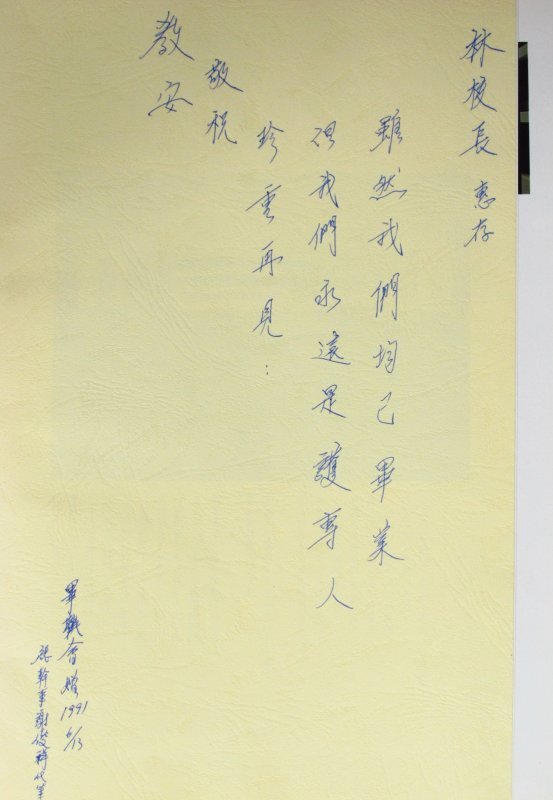 林校長 惠存
雖然我們均己畢業
但我們永遠是護專人
珍重再見：
敬祝
教安
畢聯會贈1991 6/13
總幹事謝俊 代筆